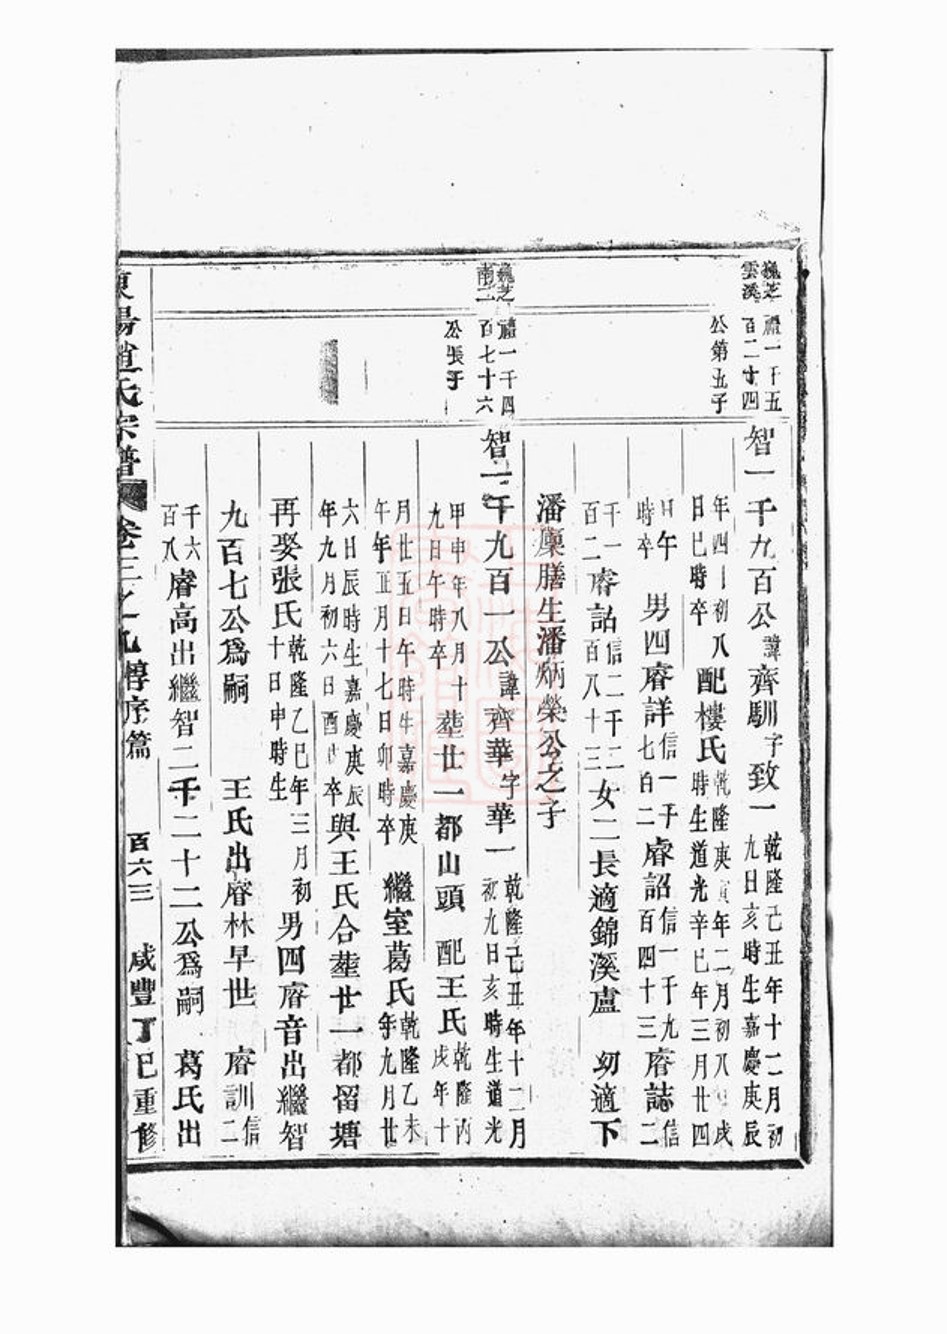 巍芝
雲溪
禮一千五
百二十四
公第五子
智一千九百公諱齊馴字致一
乾隆己丑年十二月初
九日亥時生嘉慶庚辰
年四月初八
日巳時卒
配樓氏
乾隆庚寅年二月初八日戌
時生道光辛巳年三月廿四
日午
時卒
男四睿詳
信一千
七百二
睿詔
信一千九
百四十三
睿誌
信二
千一
百二
睿詁
信二千二
百八十三
女二長適錦溪盧
幼適下
潘稟膳生潘炳榮公之子
巍芝
南二
禮一千四
百七十六
公長子
智一千九百一公諱齊華字華一
乾隆己丑年十二月
初九日亥時生道光
甲申年八月十
九日午時卒
塟廿一都山頭
配王氏
乾隆丙
戌年十
月廿五日午時生嘉慶庚
午年正月十七日卯時卒
繼室葛氏
乾隆乙未
年九月廿
六日辰時生嘉慶庚辰
年九月初六日酉時卒
與王氏合塟廿一都留塘
再娶張氏
乾隆乙巳年三月初
十日申時生
男四睿音出繼智
九百七公爲嗣
王氏出睿林早世
睿訓
信二
千六
百八
睿高出繼智二千二十二公爲嗣
葛氏出
東陽趙氏宗譜
卷三之九
惇序篇
百六三
咸豐丁巳重修